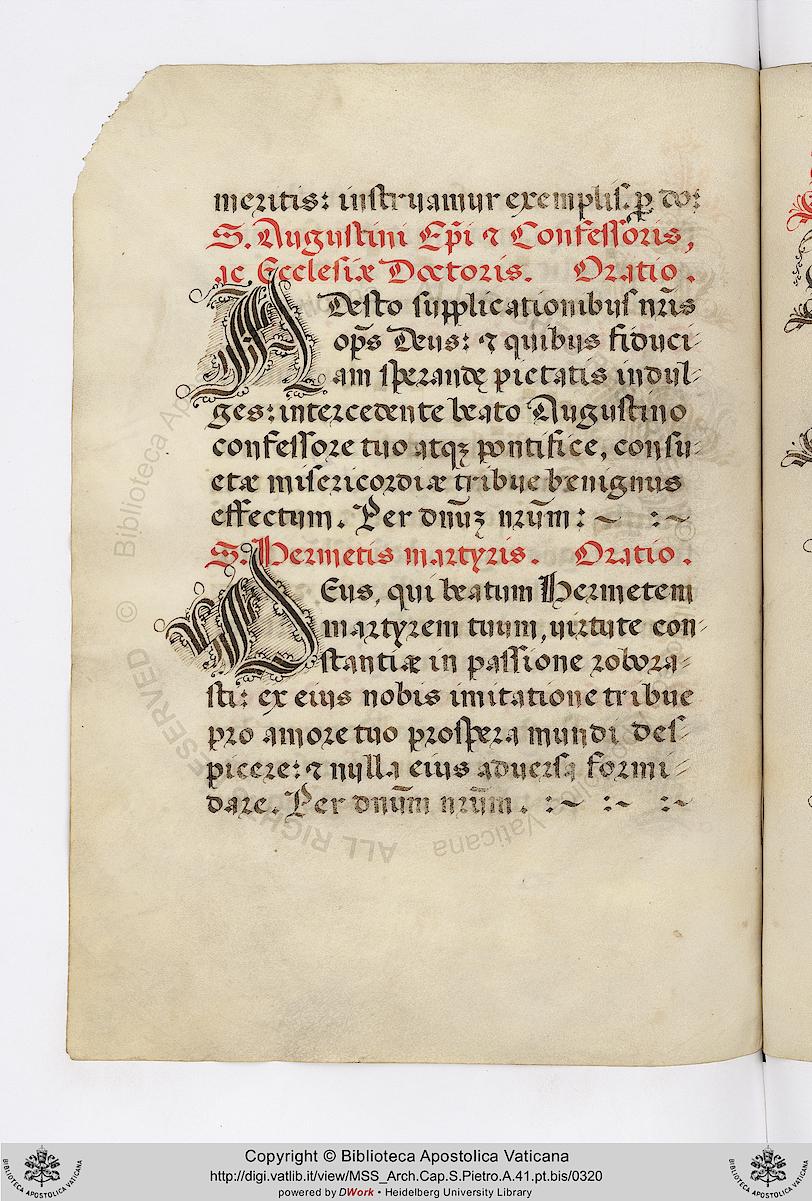 meritis: instruamur exemplis. p̱ do:
S. Augustini Ep̄i ⁊ Confessoris,
ac Ecclesiæ Doctoris. Oratio.
ADesto supplicationibus nr̄is
op̄s Deus: ⁊ quibus fiduci-
am sperandę pietatis indul-
ges: intercedente beato Augustino
confessore tuo atqꝫ pontifice, consu-
etæ misericordiæ tribue benignus
effectum. Per dnūꝫ nr̄um: ~ :~
S. Hermetis martyris. Oratio.
DEus, qui beatum Hermetem
martyrem tuum, uirtute con-
stantiæ in passione robora-
sti: ex eius nobis imitatione tribue
pro amore tuo prospera mundi des-
picere: ⁊ nulla eius aduersa formi-
dare. Per dnūm nr̄um. :~ :~ :~
© Biblioteca Apostolica Vaticana
ALL RIGHTS RESERVED
Copyright © Biblioteca Apostolica Vaticana
http://digi.vatlib.it/view/MSS_Arch.Cap.S.Pietro.A.41.pt.bis/0320
powered by DWork • Heidelberg University Library
BIBLIOTECA APOSTOLICA VATICANA
BIBLIOTECA APOSTOLICA VATICANA